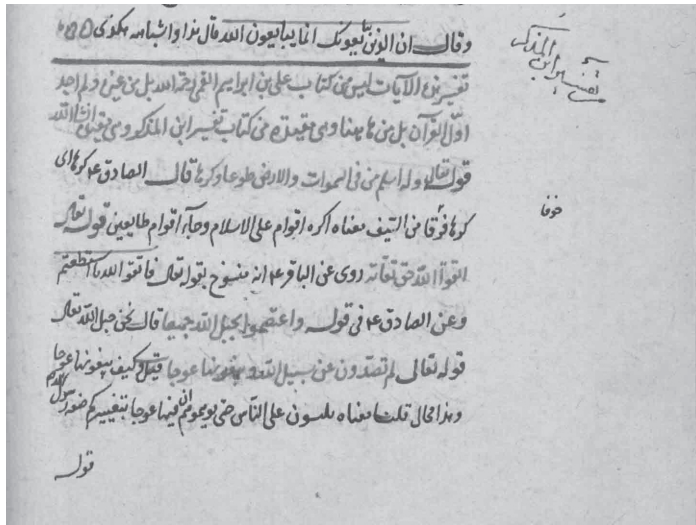 وقال ان الذين يبايعونك انما يبايعون الله قال هذا واشباهه مكوى
تفسير هذه الآيات ليس من كتاب على بن ابراهيم القمى رحمه الله بل من غيره ولم اجد
اوّل القرآن بل من هاهنا وهى مقيدة من كتاب تفسير ابن المذكور وهى قوله
قوله تعالى وله اسلم من فى السموات والارض طوعا وكرها قال الصادق ع كرها اى
كرها فرقا من السيف معناه اكره اقوام على الاسلام وجاء اقوام طايعين قوله تعالى
اتقوا الله حق تقاته روى عن الباقر ع انه منسوخ بقوله تعالى فاتقوا الله ما استطعتم
وعن الصادق ع فى قوله واعتصموا بحبل الله جميعا قال نحن حبل الله تعالى
قوله تعالى لم تصدون عن سبيل الله وتبغونها عوجا قيل وكيف يبغونها عوجا
وهذا محال قلت معناه تلبسون على النّاس حتى توهموهم ان فيها عوجا بتغييركم صفة رسول الله
قوله
تفسير ابن المذكر
خوفا